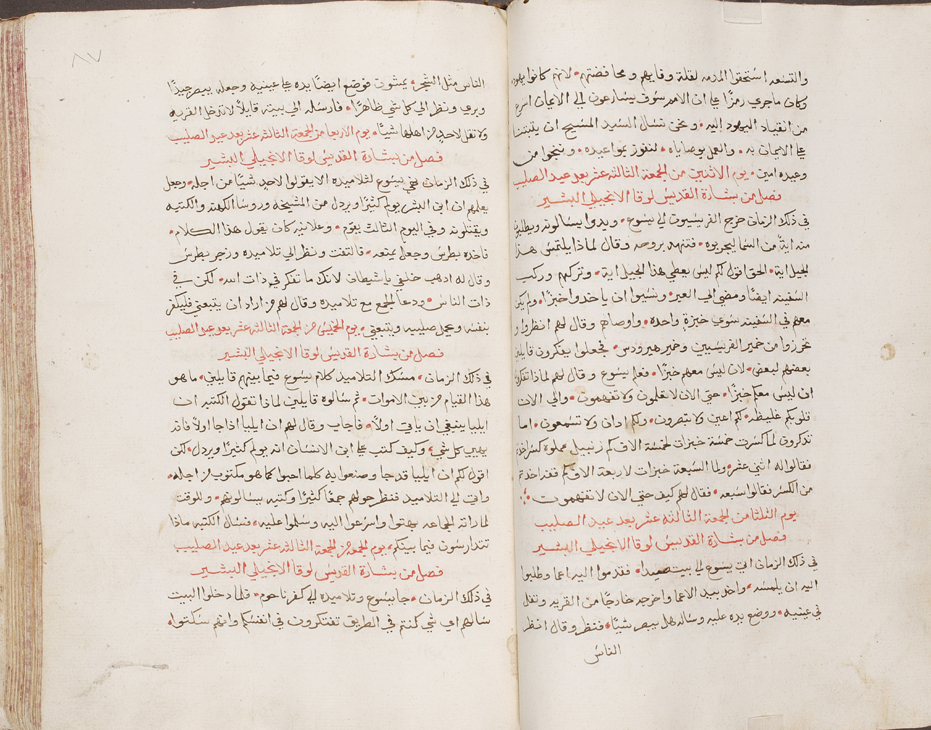 والتسعه استحقوا المذمه لقلة وفايهم ومحافضتهم • لانهم كانوا يهود
وكان ماجري رمزًا علي ان الامم سوف يسارعون الي الايمان اسرع
من انقياد اليهود اليه • ونحن نسال السيد المسيح ان يثبتنا
علي الايمان به • والعمل بوصاياه • لنفوز بمواعيده • وننجوا من
وعيده امين • يوم الاثنين من الجمعة الثالثه عشر بعد عيد الصليب
فصل من بشارة القديس لوقا الانجيلي البشير
في ذلك الزمان خرج الفريسيون الي يسوع • وبدوا يسالونه ويطلبون
منه اية من السما ليجربوه • فتنهد بروحه وقال لماذا يلتمس هذا
الجيل اية • الحق اقول لكم ليس يعطي هذا الجيل اية • وتركهم وركب
السفينه ايضًا ومضي الي العبر • ونسيوا ان ياخدوا خبزًا • ولم يكن
معهم في السفينه سوي خبزة واحده • واوصاهم وقال لهم انظروا و
تحرزوا من خمير الفريسيين وخمير هيرودس • فجعلوا يفكرون قايلين
بعضهم لبعض • لان ليس معهم خبزًا • فعلم يسوع وقال لهم لماذا تفكرون
ان ليس معكم خبزًا • حتي الان لا تعلمون ولا تفهمون • والي الان
قلوبكم غليظه • لكم اعين ولا تبصرون • ولكم ادان ولا تسمعون • اما
تذكرون لما كسرت خمسة خبزات لخمسة الاف كم زنبيل مملوه كسر اخدتم
فقالوا له اثني عشر • ولما السبعة خبزات لاربعة الاف كم قفه اخدتم
من الكسر فقالوا سبعه • فقال لهم كيف حتي الان لا تفهموت •
يوم الثلثا من الجمعة الثالثه عشر بعد عيد الصليب
فصل من بشارة القديس لوقا الانجيلي البشير
في ذلك الزمان اتي يسوع الي بيت صيدا • فقدموا اليه اعما وطلبوا
اليه ان يلمسه • واخد بيد الاعما واخرجه خارجًا من القريه وتفل
في عينيه • ووضع يده عليه وساله هل يبصر شيًا • فنظر وقال انظر
الناس
٨٧
الناس مثل الشجر • يمشون فوضع ايضًا يده علي عينيه وجعله يبصر جيدًا
وبري ونظر الي كل شي ظاهرًا • فارسله الي بيته قايلاً لا تدخل القريه
ولا تقل لاحد من اهلها شيًا • يوم الاربعا من الجمعة الثالثه عشر بعد عيد الصليب
فصل من بشارة القديس لوقا الانجيلي البشير
في ذلك الزمان نهي يسوع لتلاميده الا يقولوا لاحد شيًا من اجله • وجعل
يعلمهم ان ابن البشر يولم كثيرًا ويردل من المشيخة وروسا الكهنه والكتبه
ويقتلونه وفي اليوم الثالث يقوم • وعلانية كان يقول هذا الكلام •
فاخده بطرس وجعل يمنعه • فالتفت ونظر الي تلاميده وزجر بطرس
وقال له ادهب خلفي ياشيطان لانك ما تفكر في ذات الله • لكن في
ذات الناس • ودعا الجمع مع تلاميده وقال لهم من اراد ان يتبعني فليكفر
بنفسه ويحمل صليبه ويتبعني • يوم الخميس من الجمعة الثالثه عشر بعد عيد الصليب
فصل من بشارة القديس لوقا الانجيلي البشير
في ذلك الزمان • مسك التلاميد كلام يسوع فيما بينهم قايلين • ما هو
هدا القيام من بين الاموات • ثم سالوه قايلين لماذا تقول الكتبر ان
ايليا ينبغي ان ياتي اولاً • فاجاب وقال لهم ان ايليا اذا جا اولاً فانه
يهيي كل شي • وكيف كتب علي ابن الانسان انه يولم كثيرًا ويردل • لكن
اقول لكم ان ايليا قد جا وصنعوا به كلما احبوا كما هو مكتوب من اجله •
واتي الي التلاميد فنظر حولهم جمعًا كثيرًا وكتبه يسالونهم • وللوقت
لما راته الجماعه بهتوا واسرعوا اليه وسلموا عليه • فسال الكتبه ماذا
تتدارسون فيما بينكم • يوم الجمعه من الجمعة الثالثه عشر بعد عيد الصليب
فصل من بشارة القديس لوقا الانجيلي البشير
في ذلك الزمان • جا يسوع وتلاميده الي كفرناحوم • فلما دخلوا البيت
سالهم اي شي كنتم في الطريق تفتكرون في انفسكم وانهم سكتوا •